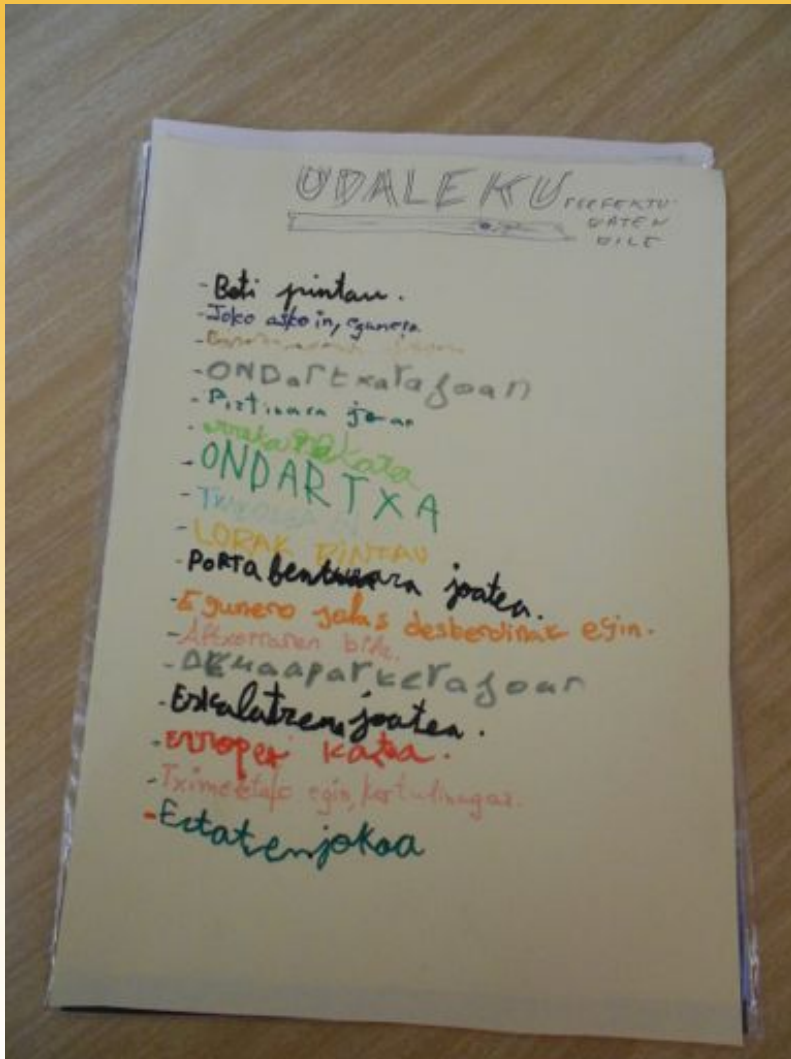 UDALEKU PERFEKTU
BATEN
BILE
- Beti pintau.
- Joko asko in, egunero
- ONDartxara joan
- Pistinara joan
- ONDARTXA
- LORAK PINTAU
- PORTAbentura joatea.
- Egunero jolas desberdinak egin.
- Altxorraren bila.
- AkuaaparkeraJoan
- Eskalatzen joatea.
- Erroper katea.
- Tximeletak egin, kartulinagaz.
- Estatuenjokoa